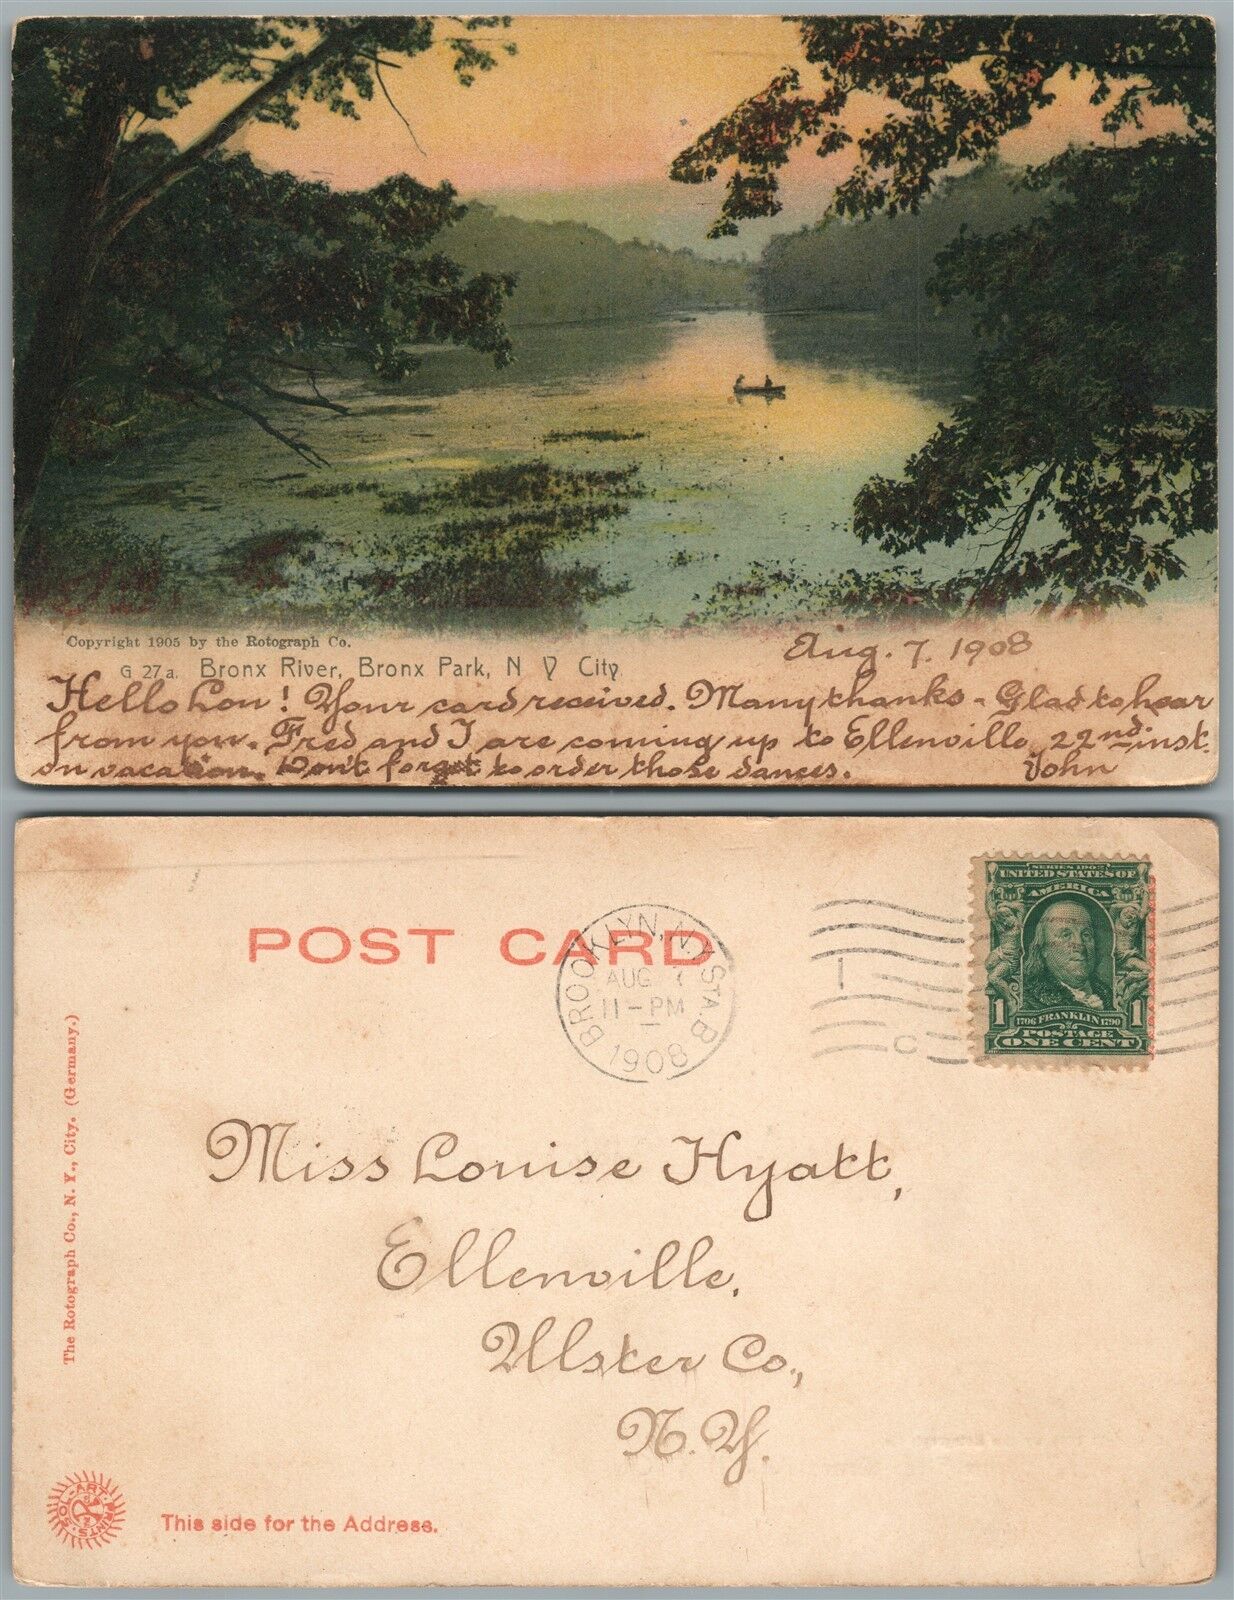 Copyright 1905 by the Rotograph Co.
G 27a. Bronx River, Bronx Park, N Y City
Aug. 7. 1908
Hello Lou! Your card received. Many thanks - Glad to hear
from you. Fred and I are coming up to Ellenville 22nd inst.
on vacation. Don't forget to order those dances. John
POST CARD
BROOKLYN, N.Y. STA. B
AUG 7
11-PM
1908
1
C
SERIES 1902
UNITED STATES OF
AMERICA
1706 FRANKLIN 1790
POSTAGE
1 ONE CENT 1
The Rotograph Co., N. Y., City. (Germany.)
Miss Louise Hyatt,
Ellenville,
Ulster Co.,
N. Y.
SOL-ART PRINTS
This side for the Address.